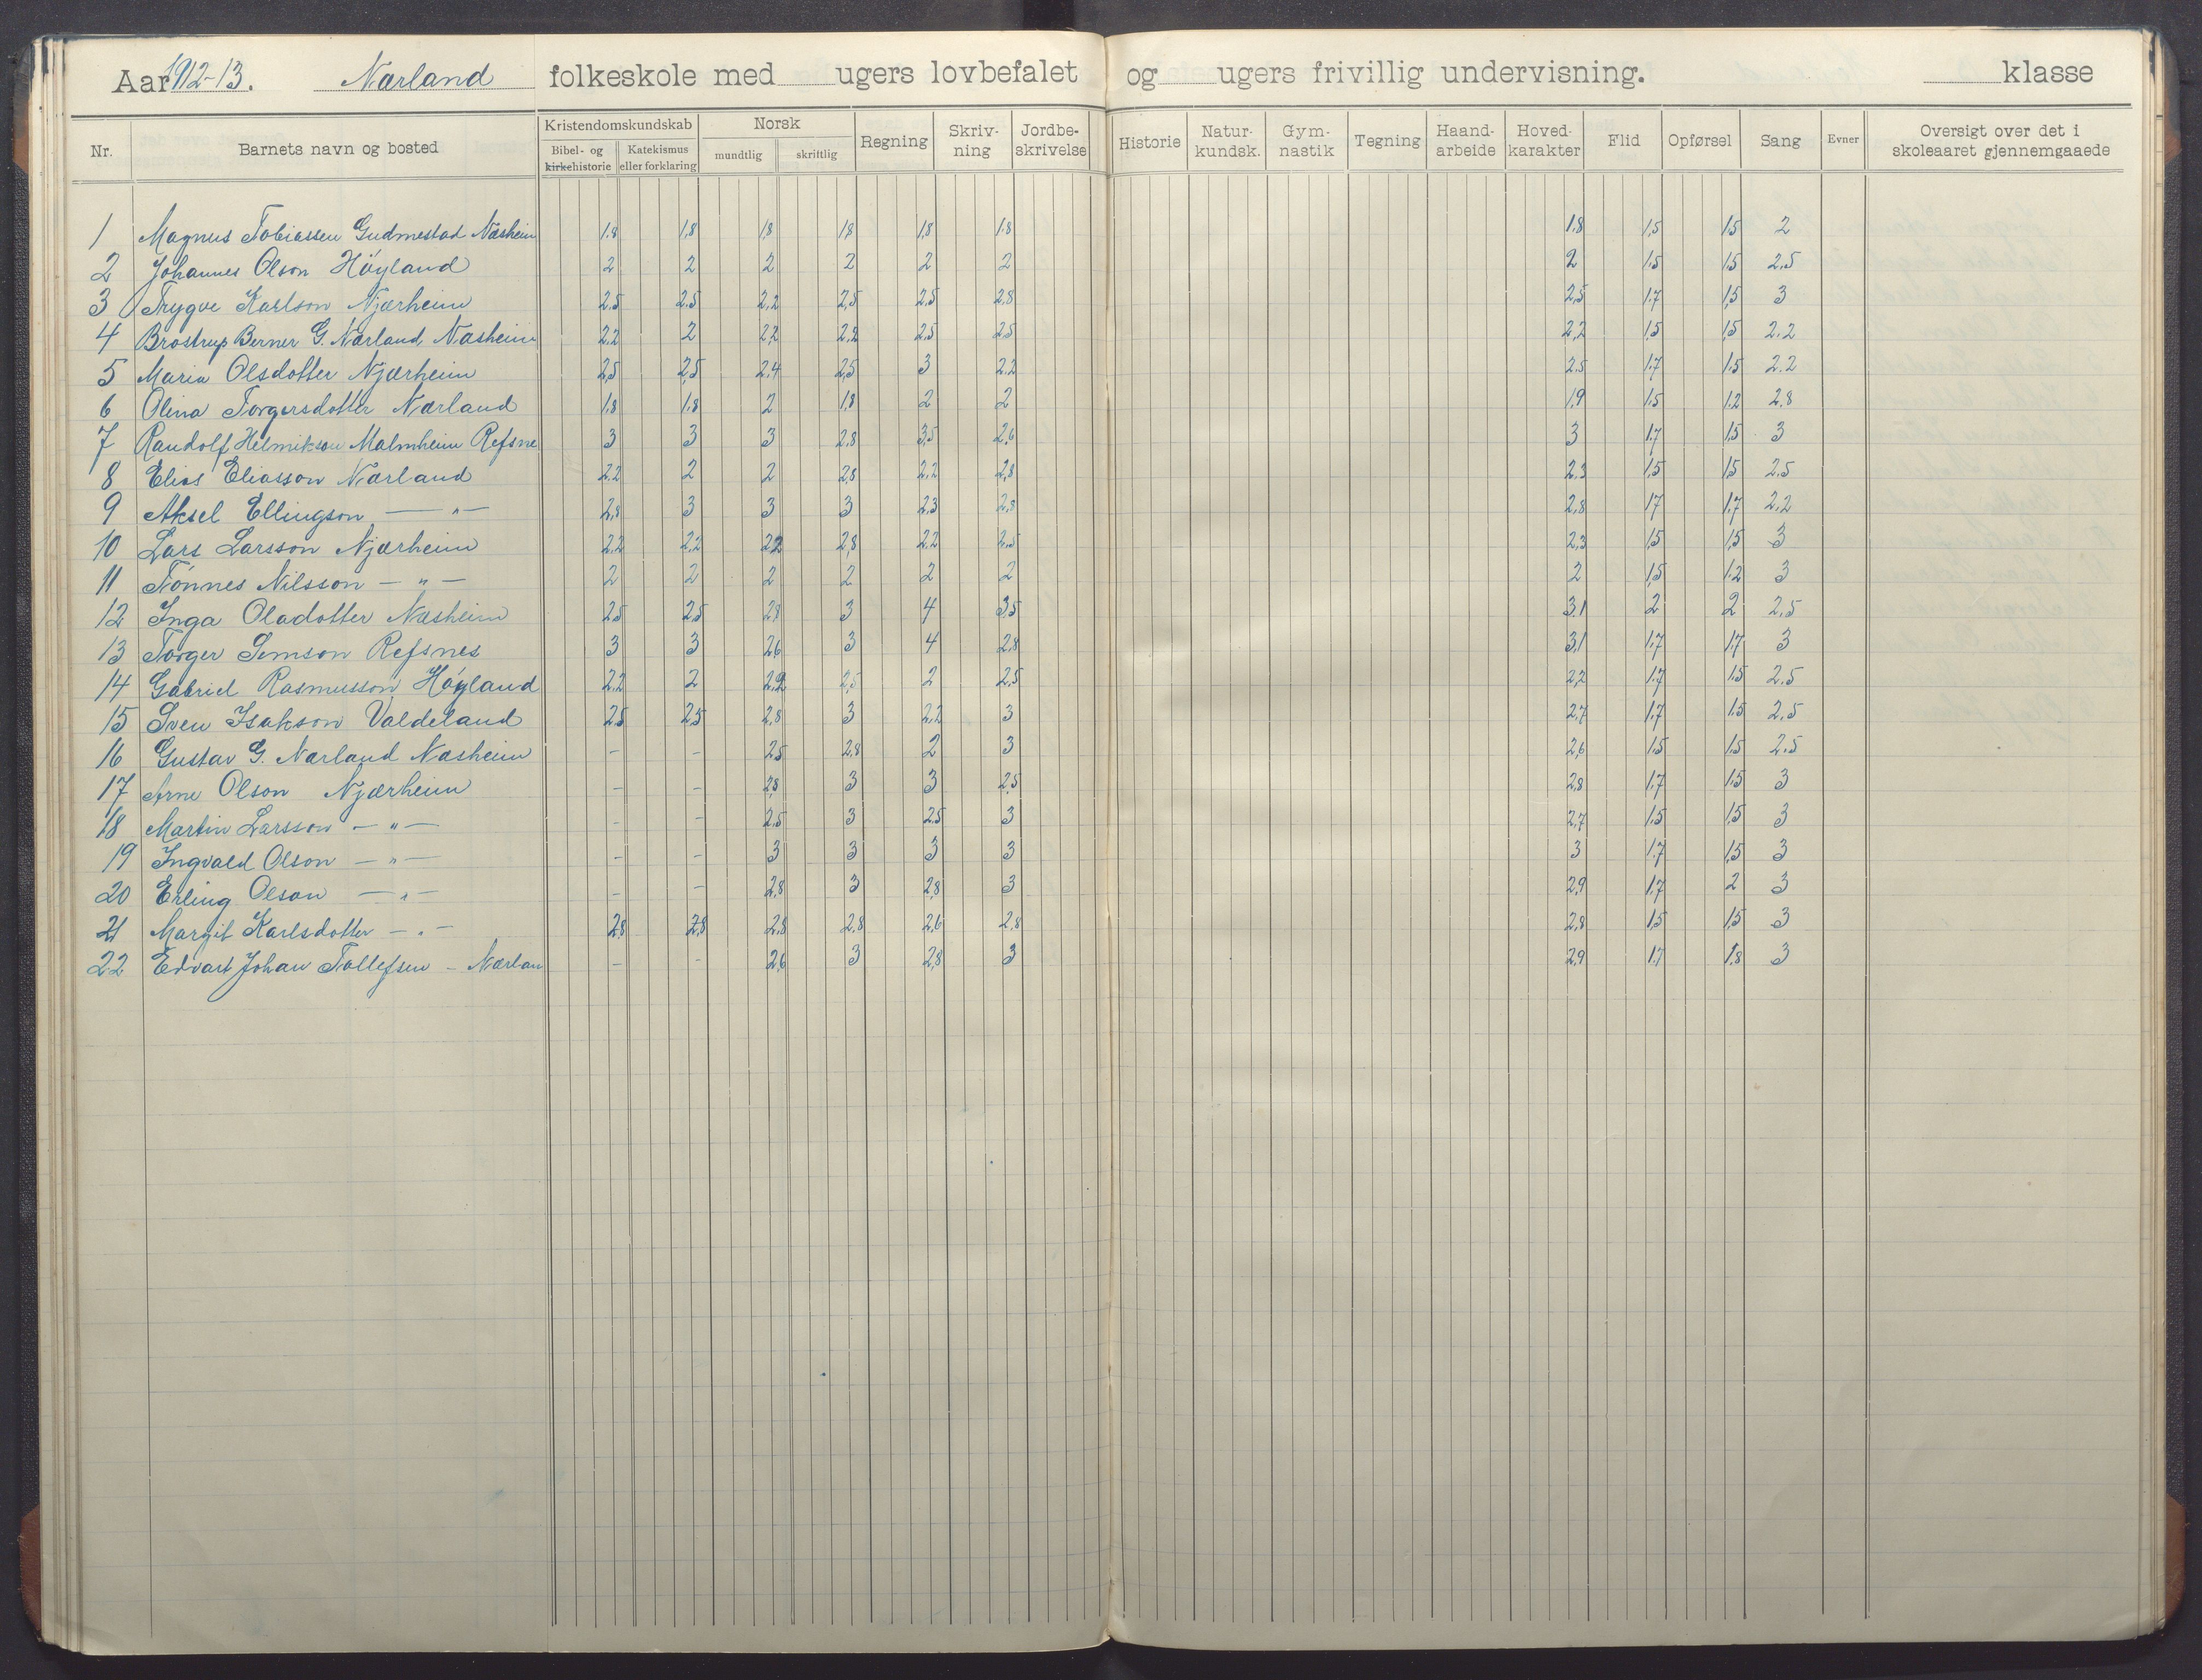 Aar 1912-13. Nærland folkeskole med ugers lovbefalet og ugers frivillig undervisning. klasse
Nr. Barnets navn og bosted Kristendomskundskab Bibel- og kirkehistorie Katekismus eller forklaring Norsk mundtlig skriftlig Regning Skriv-ning Jordbe-skrivelse Historie Natur-kundsk. Gym-nastik Tegning Haand-arbeide Hoved-karakter Flid Opførsel Sang Evner Oversigt over det i skoleaaret gjennemgaaede
1 Magnus Tobiassen Gudmestad Næsheim 1.8 1.8 1.8 1.8 1.8 1.8 1.8 1.5 1.5 2
2 Johannes Olson Höyland 2 2 2 2 2 2 2 1.5 1.5 2.5
3 Trygve Karlson Njærheim 2.5 2.5 2.2 2.5 2.5 2.8 2.5 1.7 1.5 3
4 Brostrup Berner G. Nærland, Næsheim 2.2 2 2.2 2.2 2.5 2.5 2.2 1.5 1.5 2.2
5 Maria Olsdotter Njærheim 2.5 2.5 2.4 2.5 3 2.2 2.5 1.7 1.5 2.2
6 Olina Torgersdotter Nærland 1.8 1.8 2 1.8 2 2 1.9 1.5 1.2 2.8
7 Randolf Helmikson Malmheim Refsne 3 3 3 2.8 3.5 2.6 3 1.7 1.5 3
8 Elias Eliasson Nærland 2.2 2 2 2.8 2.2 2.8 2.3 1.5 1.5 2.5
9 Aksel Ellingson — " — 2.8 3 3 3 2.3 2.8 2.8 1.7 1.7 2.2
10 Lars Larsson Njærheim 2.2 2.2 2.2 2.8 2.2 2.5 2.3 1.5 1.5 3
11 Tönnes Nilsson — " — 2 2 2 2 2 2 2 1.5 1.2 3
12 Inga Oladotter Næsheim 2.5 2.5 2.8 3 4 3.5 3.1 2 2 2.5
13 Torger Simson Refsnes 3 3 2.6 3 4 2.8 3.1 1.7 1.7 3
14 Gabriel Rasmusson Höyland 2.2 2 2.2 2.5 2 2.5 2.2 1.7 1.5 2.5
15 Sven Isakson Valdeland 2.5 2.5 2.8 3 2.2 3 2.7 1.7 1.5 2.5
16 Gustav G. Nærland Næsheim – – 2.5 2.8 2 3 2.6 1.5 1.5 2.5
17 Arne Olson Njærheim – – 2.8 3 3 2.5 2.8 1.7 1.5 3
18 Martin Larsson — " — – – 2.5 3 2.5 3 2.7 1.5 1.5 3
19 Ingvald Olson — " — – – 3 3 3 3 3 1.7 1.5 3
20 Erling Olson — " — – – 2.8 3 2.8 3 2.9 1.7 2 3
21 Margit Karlsdotter — " — 2.8 2.8 2.8 2.8 2.6 2.8 2.8 1.5 1.5 3
22 Edvart Johan Tollefsen – Nærlan – – 2.6 3 2.8 3 2.9 1.7 1.8 3